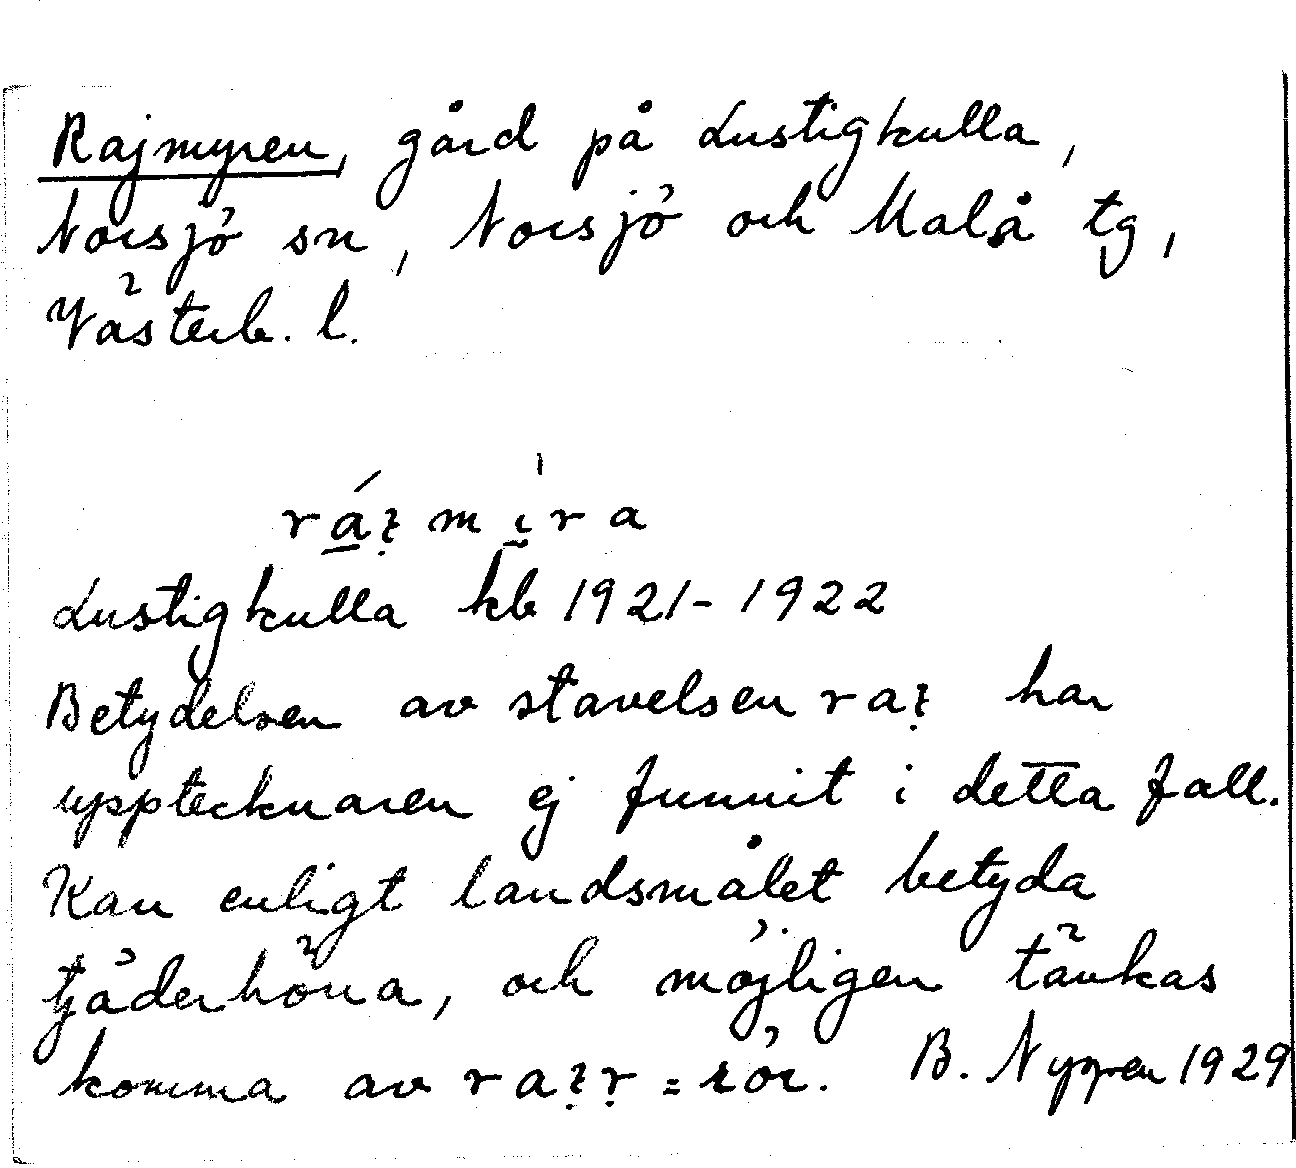 Rajmyren, gård på Lustigkulla,
Norsjö sn, Norsjö och Malå tg,
Västerb. l.
Lustigkulla kb 1921-1922
Betydelsen av stavelsen har
upptecknaren ej funnit i detta fall.
Kan enligt landsmålet betyda
tjäderhöna, och möjligen tänkas
komma av = rör. B. Nygren 1929